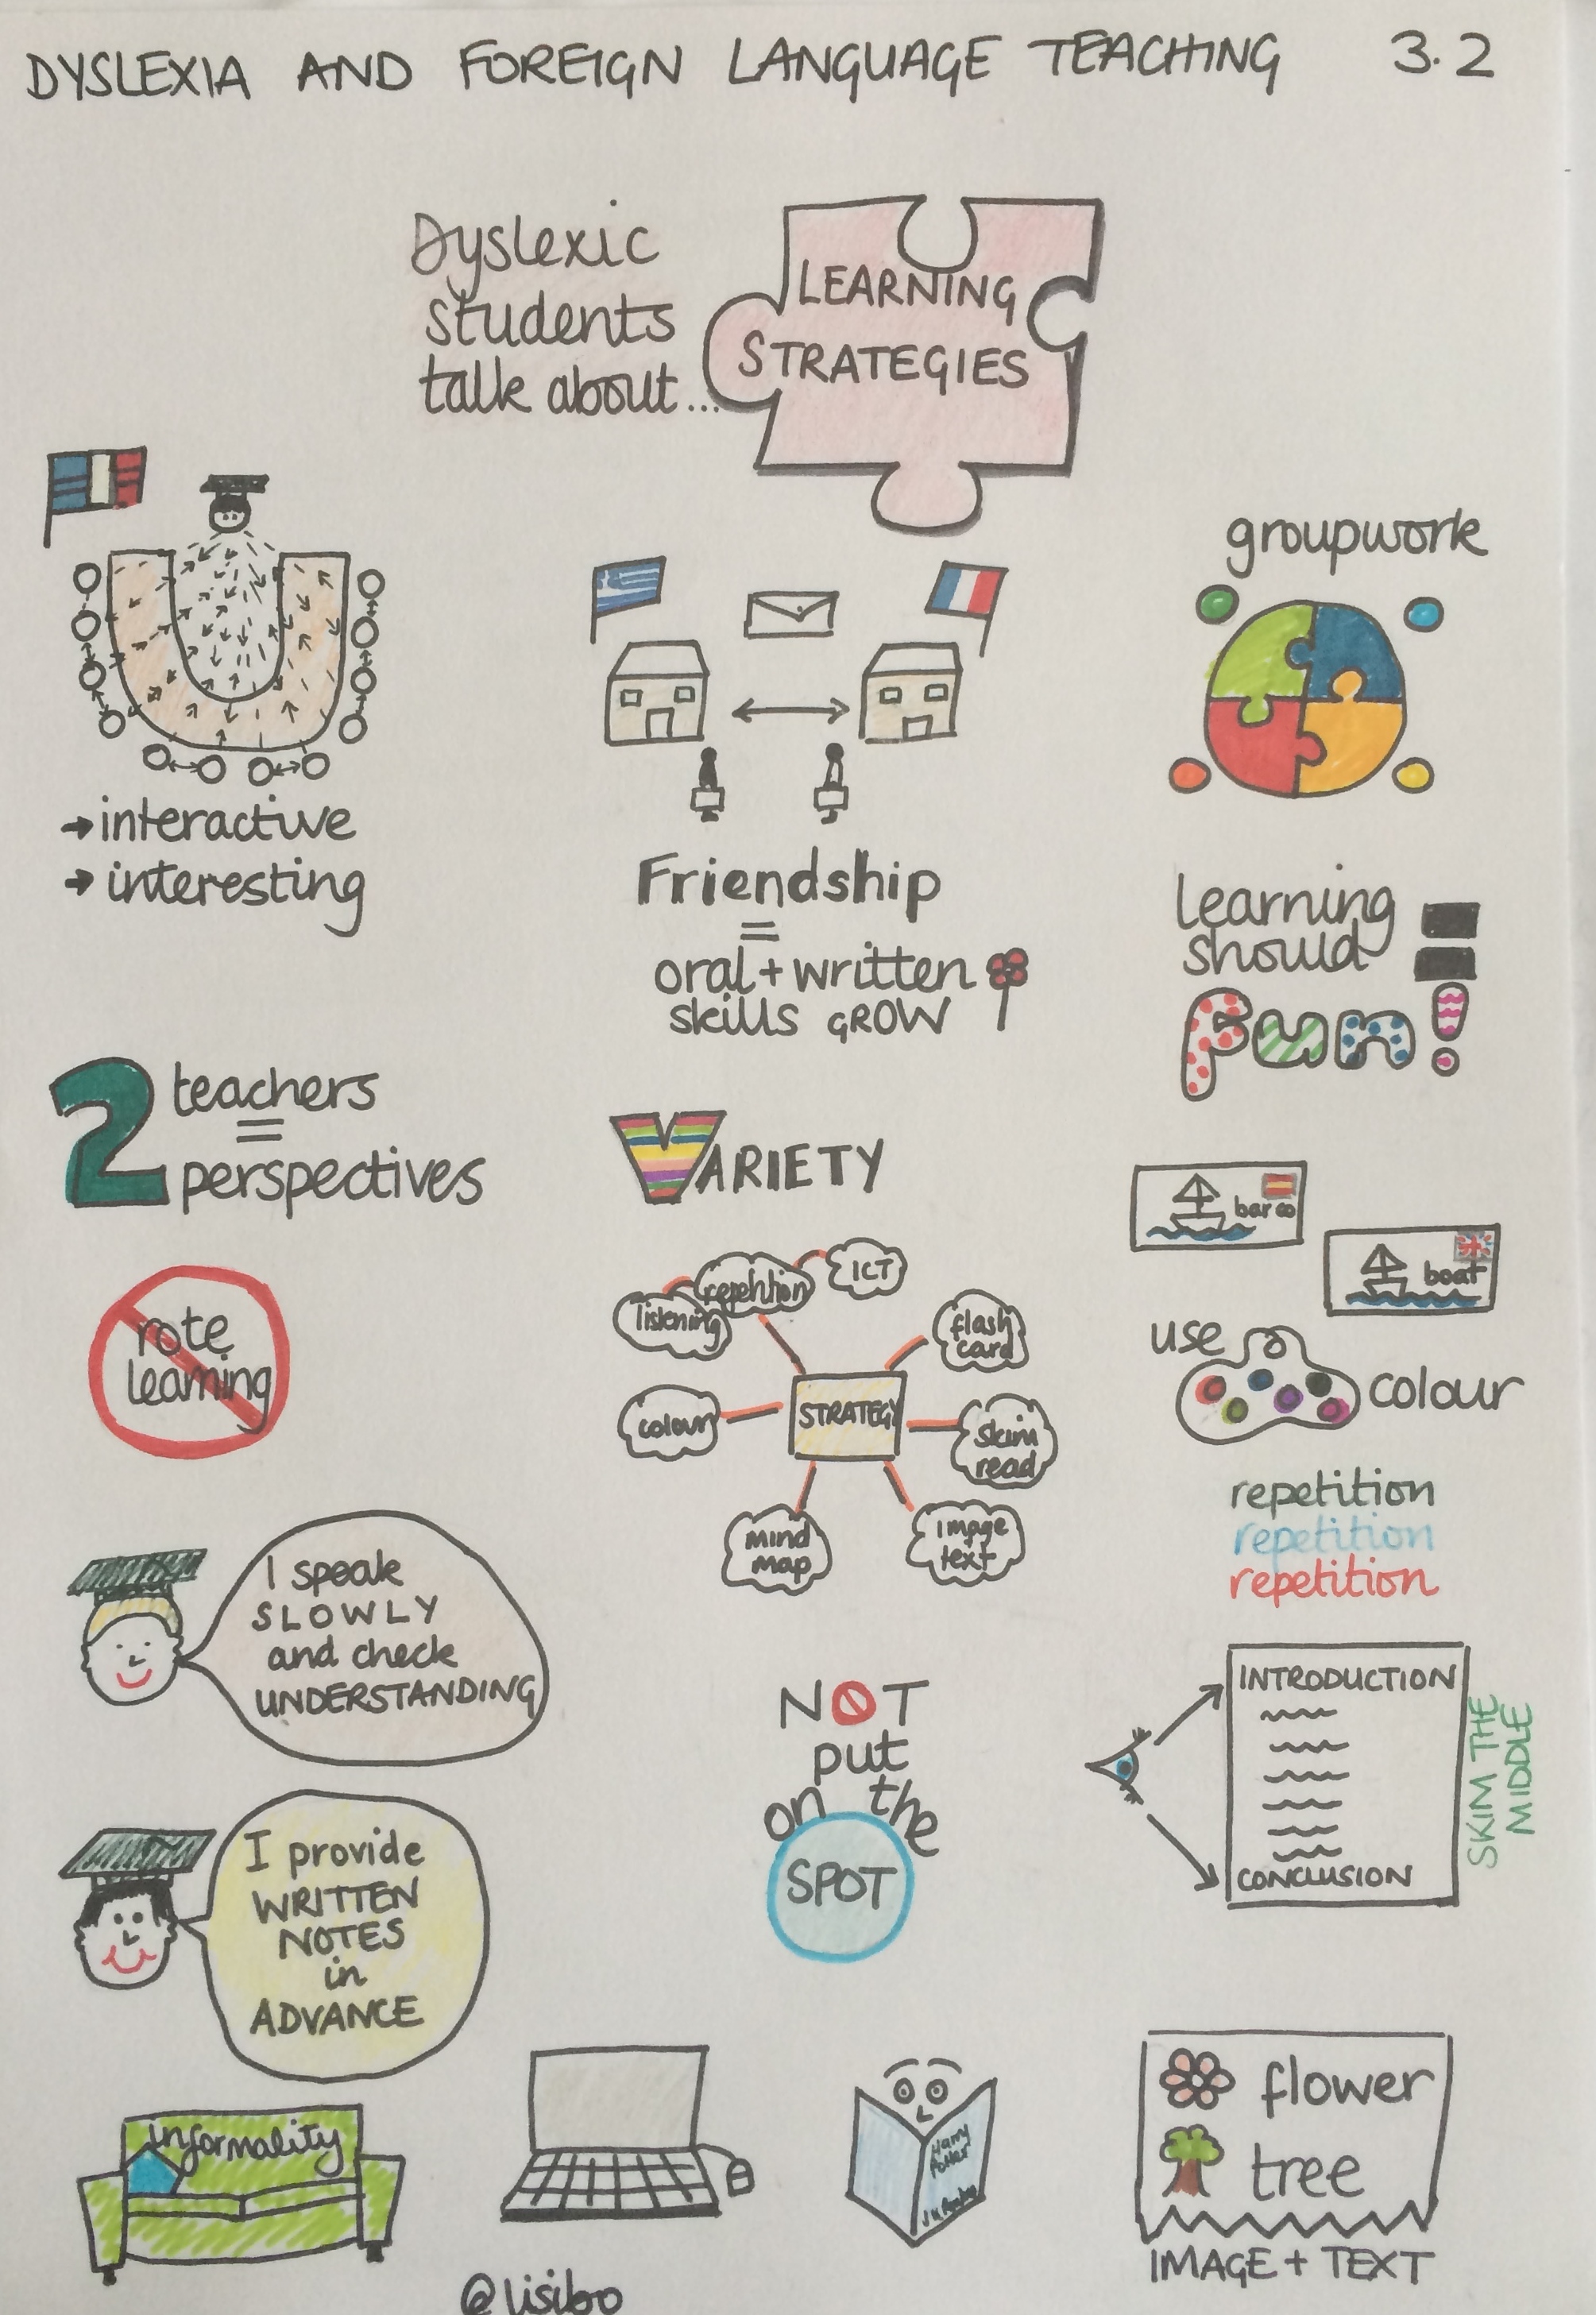 DYSLEXIA AND FOREIGN LANGUAGE TEACHING 3.2
Dyslexic
students
talk about...
LEARNING
STRATEGIES
→ interactive
→ interesting
Friendship
=
oral + written
skills GROW
groupwork
learning
should
Fun!
2 teachers
=
perspectives
VARIETY
barco
boat
rote
learning
listening
repetition
ICT
flash
card
colour
STRATEGY
skim
read
mind
map
image
text
use
colour
repetition
repetition
repetition
I speak
SLOWLY
and check
UNDERSTANDING
NOT
put
on the
SPOT
INTRODUCTION
CONCLUSION
SKIM THE
MIDDLE
I provide
WRITTEN
NOTES
in
ADVANCE
informality
Harry
Potter
flower
tree
IMAGE + TEXT
@lisibo